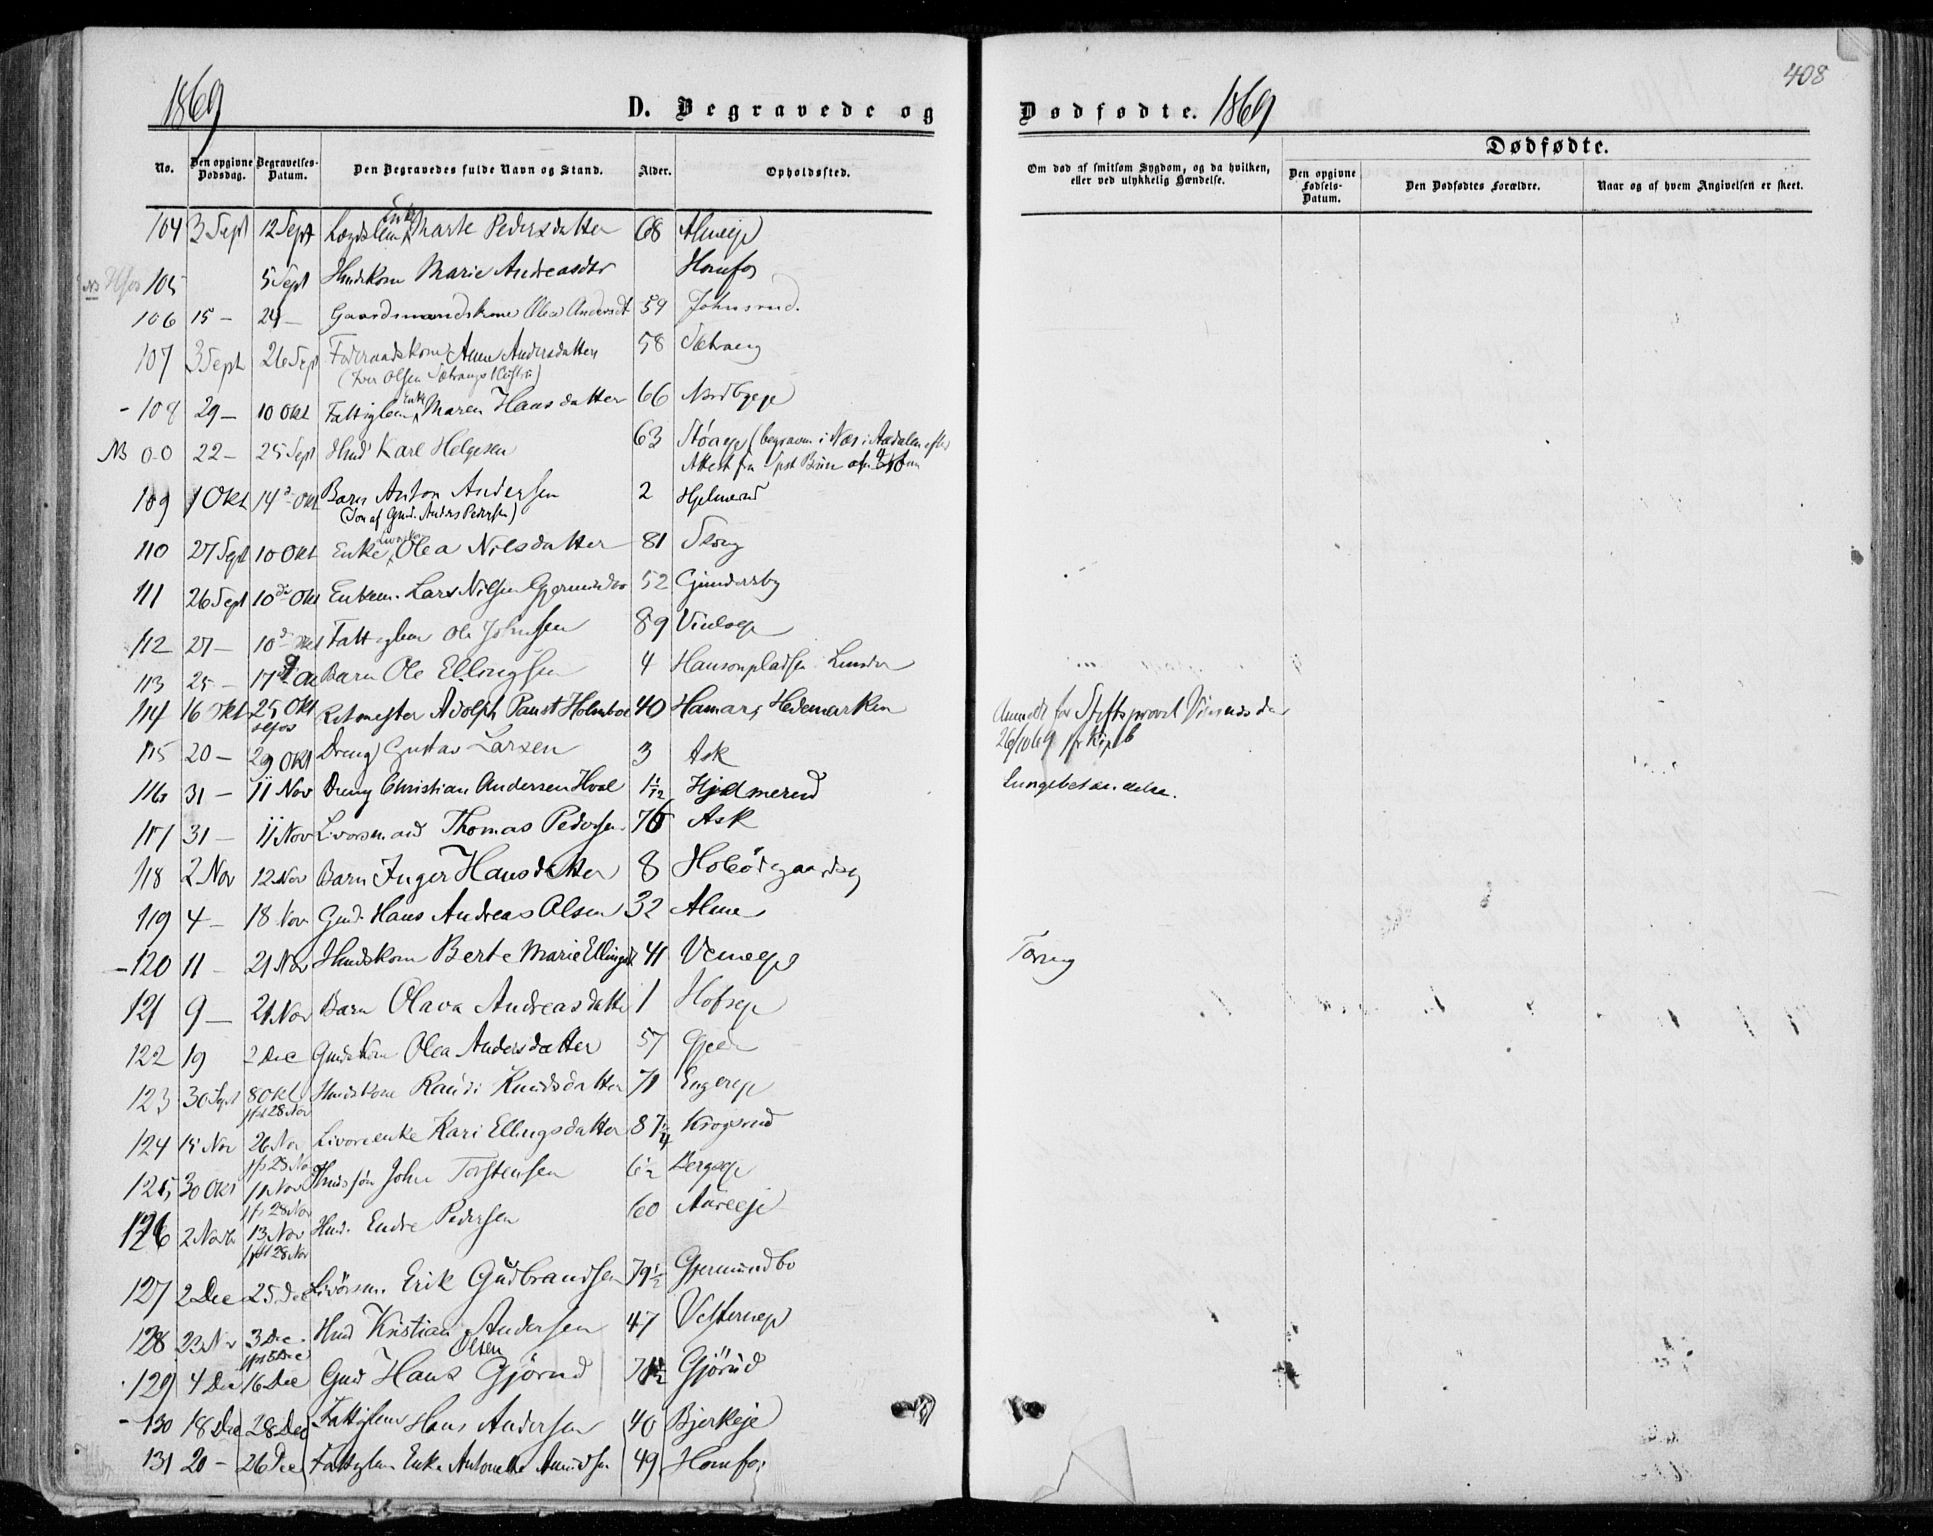 1869
D. Begravede og
No.
Den opgivne Dødsdag.
Begravelses-Datum.
Den Begravedes fulde Navn og Stand.
Alder.
Opholdssted.
104 3 Sept 12 Sept Lægdslem Enke Marte Pedersdatter 68 Almeje
105 5 Sept Husmkone Marie Andreasdtr Honnfos
106 15 – 24 – Gaardmandskone Olea Andersdt 59 Johnsrud.
107 3 Sept 26 Sept Føderaadskone Anne Andersdatter 58 Sætrang
(Iver Olsen Sætrangs Hustru)
- 108 29 – 10 Okt Fattiglem Enke Maren Hansdatter 66 Nordbyeje
NB 00 22 – 25 Sept Husmd Karl Helgesen 63 Støaeje (begraven i Næs i Aadalen efter
Attest fra
109 1 Okt 14de Okt Barn Anton Andersen 2 Hjelmerud
(Søn af Gmd. Anders Pedersen)
110 27 Sept 10 Okt Enke Livørske Olea Nilsdatter 81 Skong
111 26 Sept 10de Okt Enkem. Lars Nilsen Gjermundbo 52 Gjundersby
112 27 – 10de Fattiglem Ole Johnsen 89
113 25 – 17de Barn Ole Ellingsen 4 Hansonpladsen Lunder
114 16 Okt 25 Okt Ritmester Adolph Paust Holmboe 40 Hamar, Hedemarken
115 20 – 29 Okt Dreng Gustav Larsen 3 Ask
116 31 – 11 Nov Dreng Christian Andersen Hval 1 1/12 Hjelmerud
117 31 – 11 Nov Livørsmand Thomas Pedersen 76 Ask
118 2 Nov 12 Nov Barn Inger Hansdatter 8
119 4 – 18 Nov Gmd. Hans Andreas Olsen 32 Alme
- 120 11 – 21 Nov Husmdskone Berte Marie Ellingsdt 41 Vemeeje
121 9 – 21 Nov Barn Olava Andreasdatter 1 Hofseje
122 19 2 Dec Gmdskone Olea Andersdatter 57
123 30 Sept 8 Okt Husmdskone Randi Knudsdatter 71 Engereje
jfst 28 Nov
124 15 Nov 26 Nov Livøreenke Kari Ellingsdatter 87 Krogsrud
jfst 28 Nov
125 30 Okt 11 Nov Husmdssøn John Torstensen 6 1/2 Bergseje
jfst 28 Nov
126 2 Novb 13 Nov Husmd. Endre Pedersen 60
jfst 28 Nov
127 2 Dec 25 Dec Livørsm. Erik Gudbrandsen 79 1/2 Gjermundbo
128 22 Nv 3 Dec. Husmd Kristian Andersen 47 Vesterneje
jfst 5 Dec
129 4 Dec 16 Dec Gmd Hans Olsen Gjörud Gjörud
- 130 18 Dec 28 Dec Fattiglem Hans Andersen 40 Bjerkeje
131 20 – 26 Dec Fattiglem Enke Antonette Amundsen 49 Honnfos
Dødfødte. 1869
408
Om død af smitsom Sygdom, og da hvilken, eller ved ulykkelig Hændelse.
Dødfødte.
Den opgivne Fødsels-Datum.
Den Dødfødtes Forældre.
Naar og af hvem Angivelsen er skeet.
Anmeldt for Stiftsprovst
26/10 69
Lungebetændelse.
Tæring